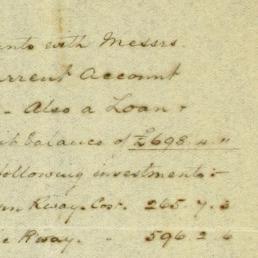 with Messrs
Current Account
- Also a Loan
balance of £698.4.11
following investments:-
Rway. Cos. 265.7.3
Rway. " 596.2.6